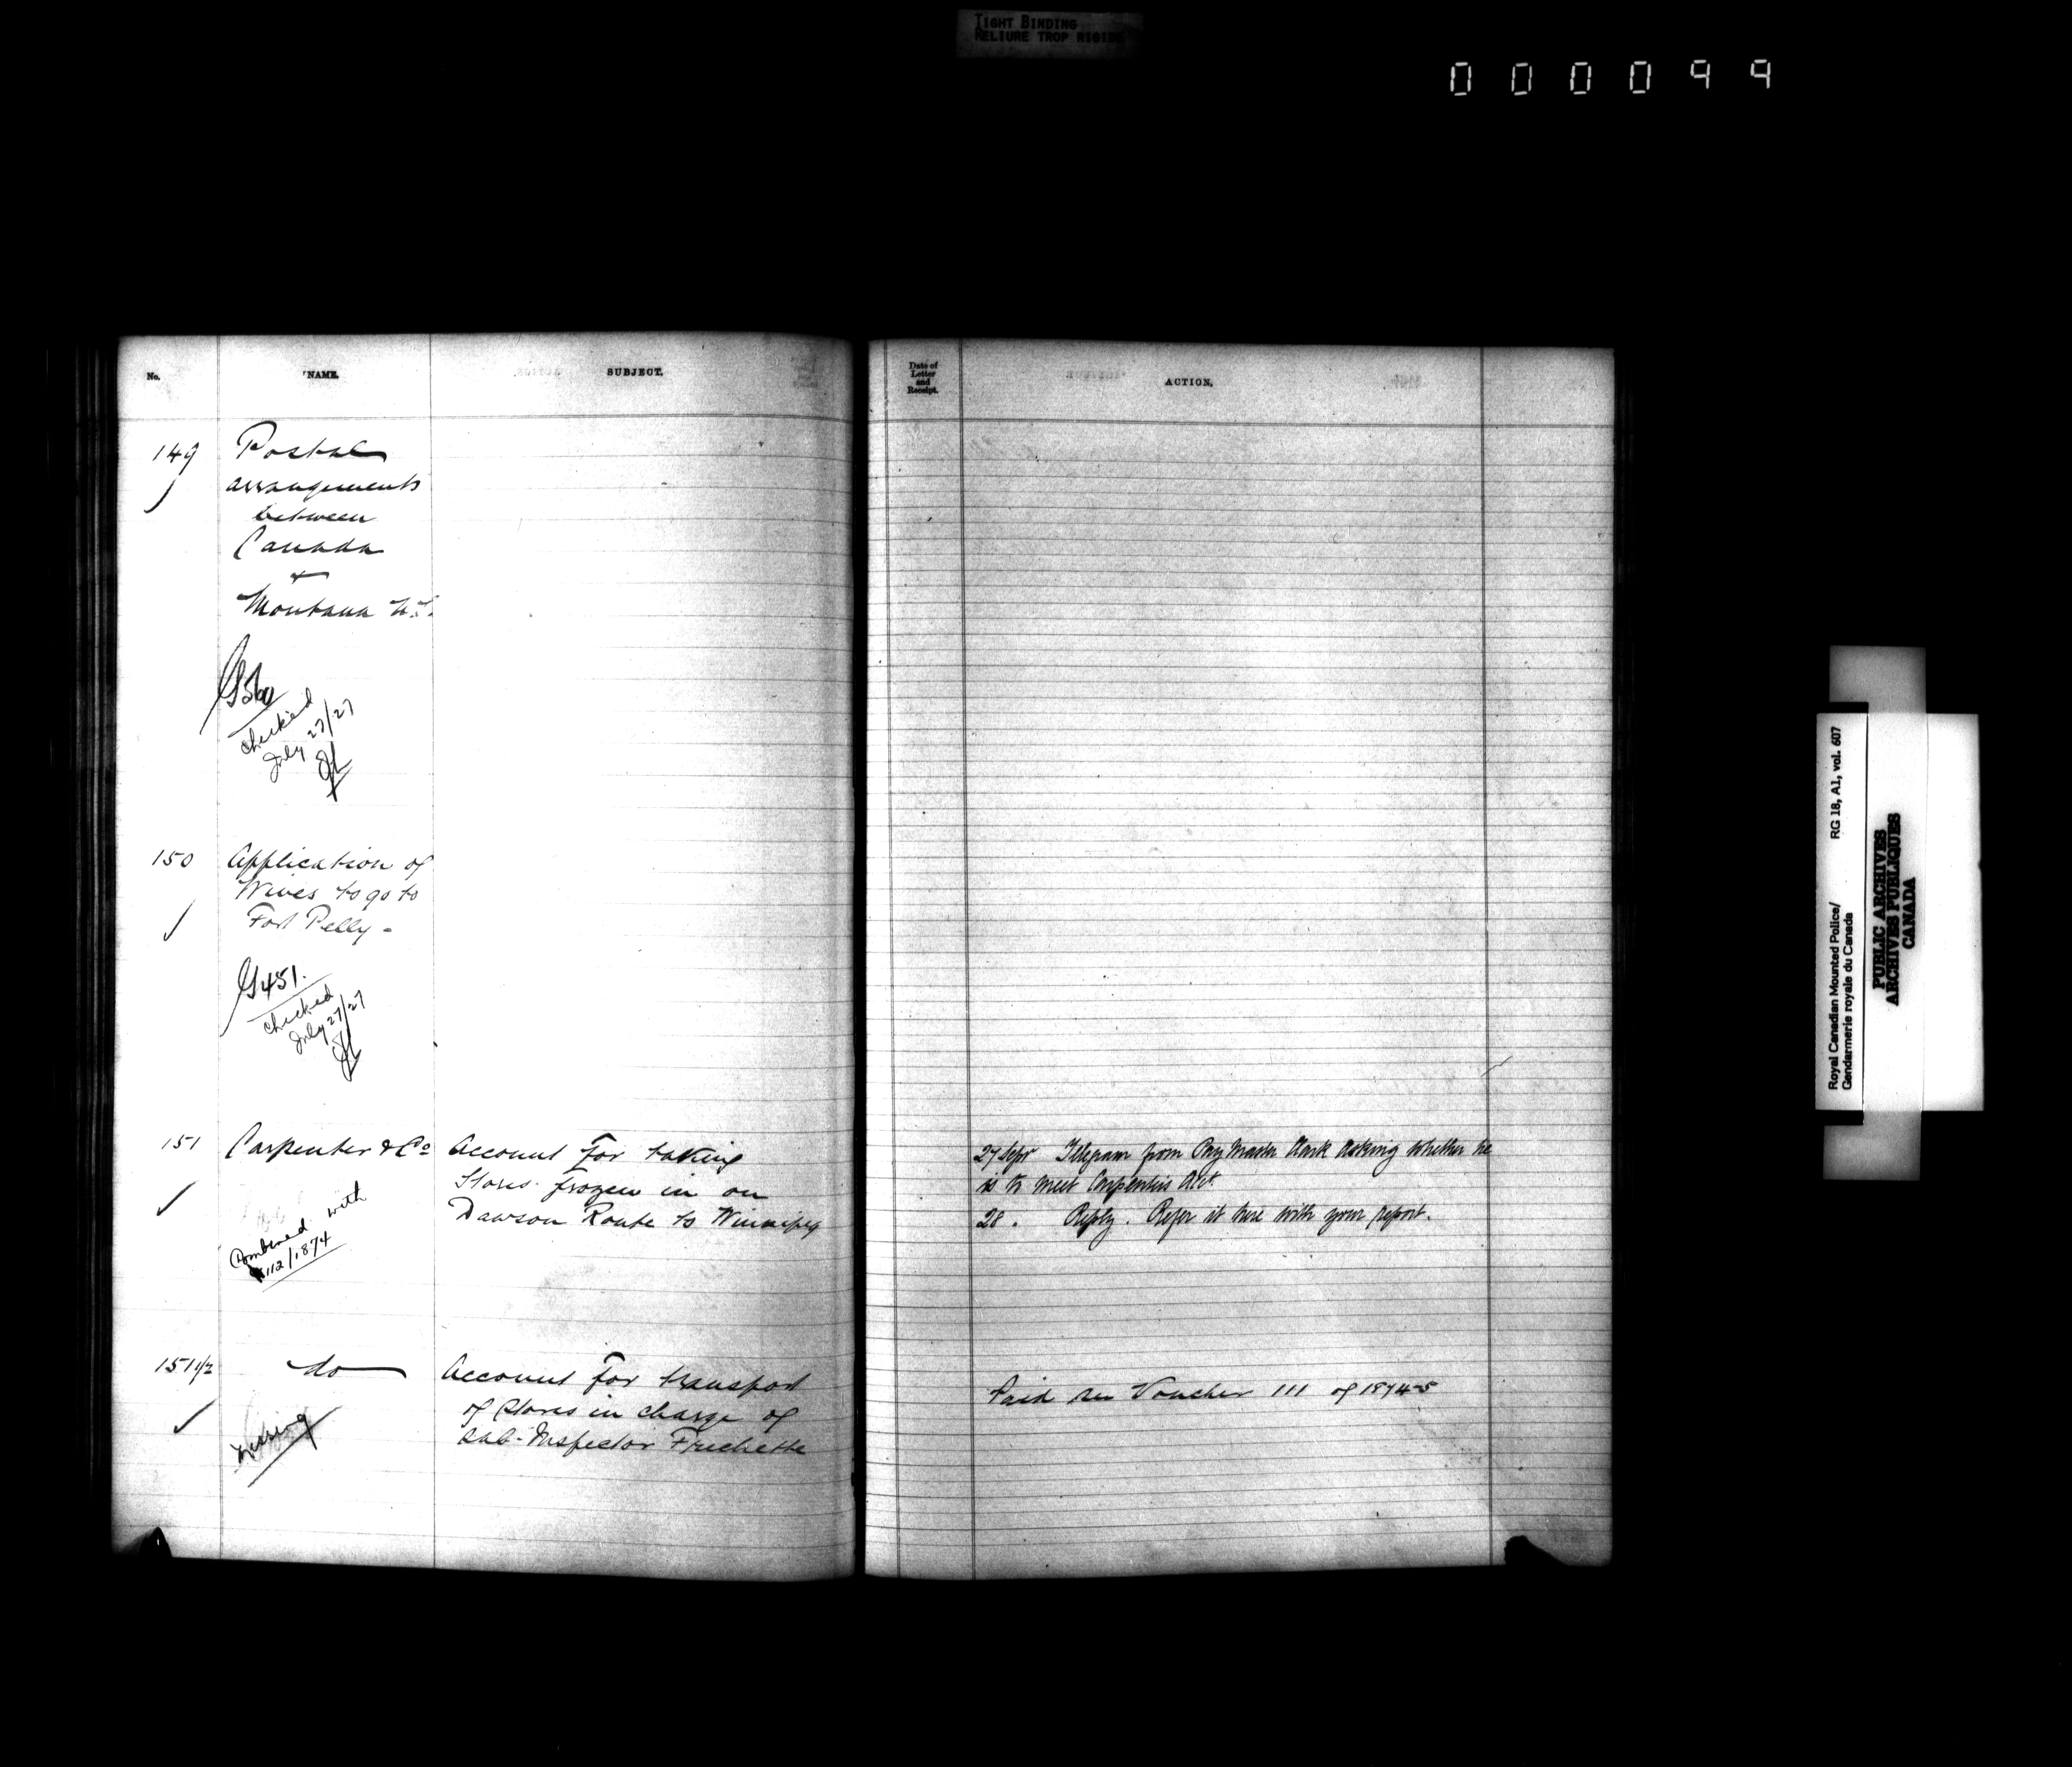 TIGHT BINDING
RELIURE TROP RIGIDE
000099
No.
NAME.
SUBJECT.
Date of
Letter
and
Receipt.
ACTION.
149 Postal
arrangements
between
Canada
&
Montana U.S.
checked
July 27/27
150 Application of
Wives to go to
Fort Pelly -
G 451.
checked
July 27/27
151 Carpenter & Co Account for taking
Stores frozen in on
Dawson Route to Winnipeg
27 Sepr Telegram from Pay Master Clark asking whether he
is to meet Carpenters Acct.
28. Reply. Refer it here with your report.
Combined with
112/1874
151 1/2 do Account for transport
of Stores in charge of
Sub-Inspector Frechette
Paid see Voucher 111 of 1874-5
Missing
Royal Canadian Mounted Police/ RG 18, A1, vol. 607
Gendarmerie royale du Canada
PUBLIC ARCHIVES
ARCHIVES PUBLIQUES
CANADA